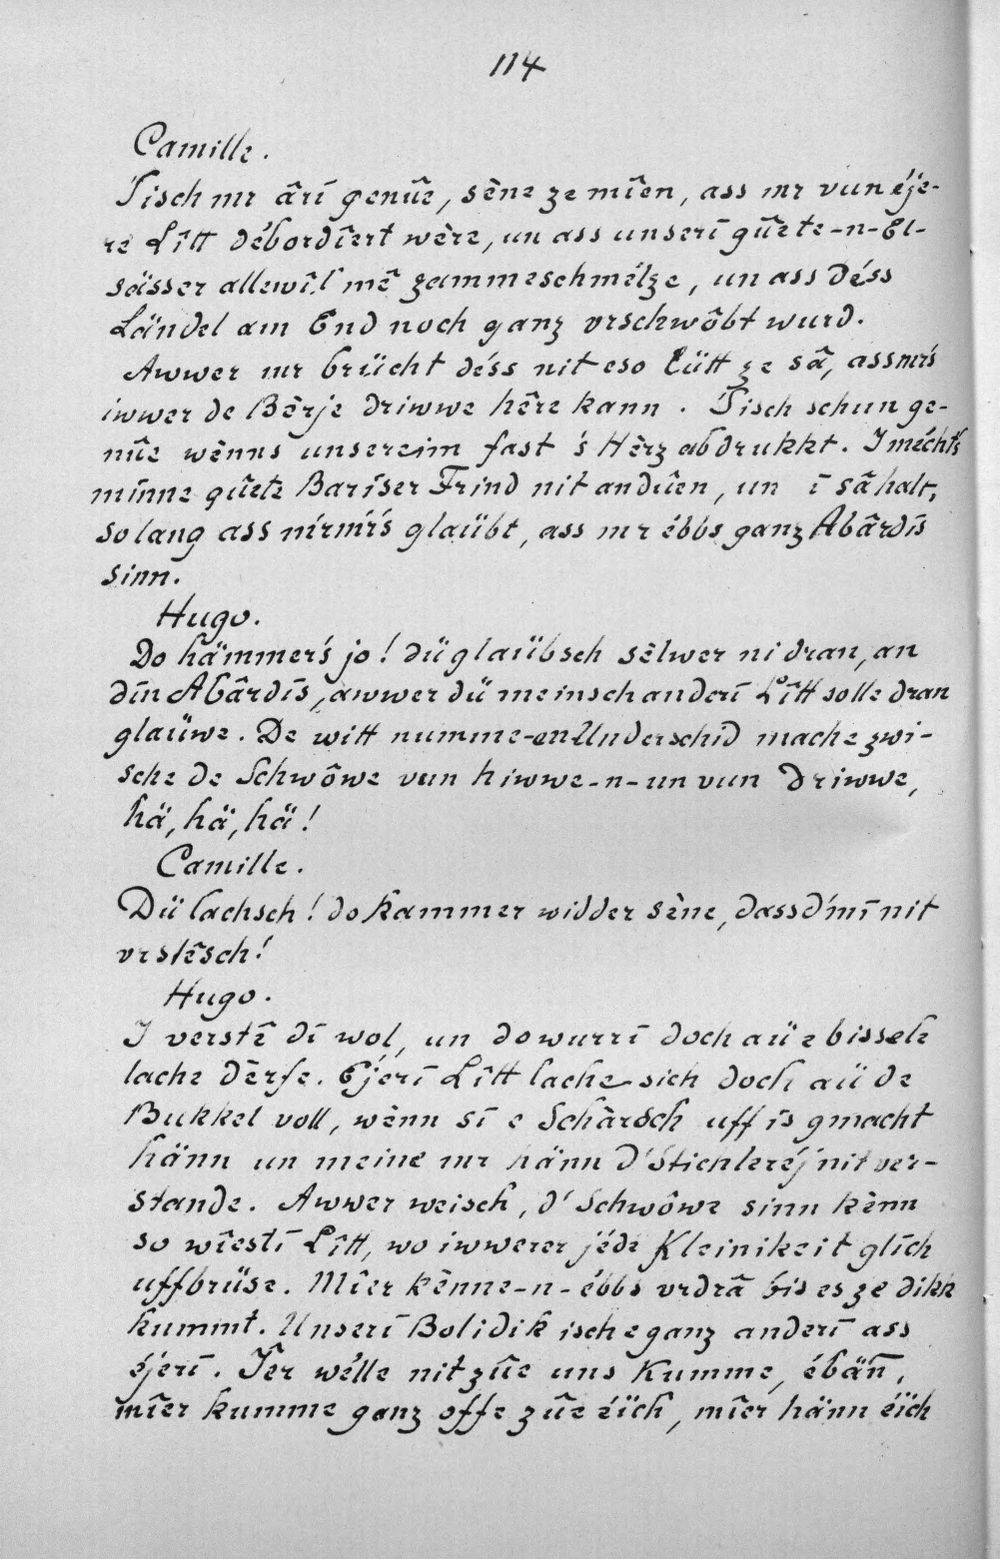 114
Camille.
'Sisch mr ârī genûe, sène ze mîen, ass mr vun éje-
re Lîtt débordîert wère, un ass unserī gûete-n-El-
sässer allewîl mê zammeschmélze, un ass déss
Ländel am End noch ganz vrschwôbt wurd.
Awwer mr brücht déss nit eso lütt ze sâ, assmr's
iwwer de Bèrje driwwe hêre kann. 'Sisch schun ge-
nûe wènns unsereim fast 's Hèrz abdrukkt. I mécht's
mīnne gûete Barīser Frind nit andûen, un ī sâ halt,
solang ass mīr mīr's glaübt, ass mr ébbs ganz Abârdīs
sinn.
Hugo.
Do hämmer's jo! dü glaübsch sèlwer ni dran, an
dīn Abârdīs, awwer dü meinsch anderī Lîtt solle dran
glaüwe. De witt numme-en Underschid mache zwi-
sche de Schwôwe vun hiwwe-n-un vun driwwe,
hä, hä, hä!
Camille.
Dü lachsch! do kammer widder sène, dass d'mī nit
vrstêsch!
Hugo.
I verstê dī wol, un do wurrī doch aü e bissele
lache dèrfe. Éjerī Lîtt lache sich doch aü de
Bukkel voll, wènn sī e Schàrsch uff īs gmacht
hänn un meine mr hänn d'Stichleréj nit ver-
stande. Awwer weisch, d'Schwôwe sinn kènn
so wîestī Lîtt, wo iwwerer jéde Kleinikeit glīch
uffbrüse. Mîer kènne-n-ébbs vrdrâ bis es ze dikk
kummt. Unserī Bolidik isch e ganz anderī ass
éjerī. Îer wélle nit zûe uns kumme, ébän,
mîer kumme ganz offe zûe éüch, mîer hänn éüch